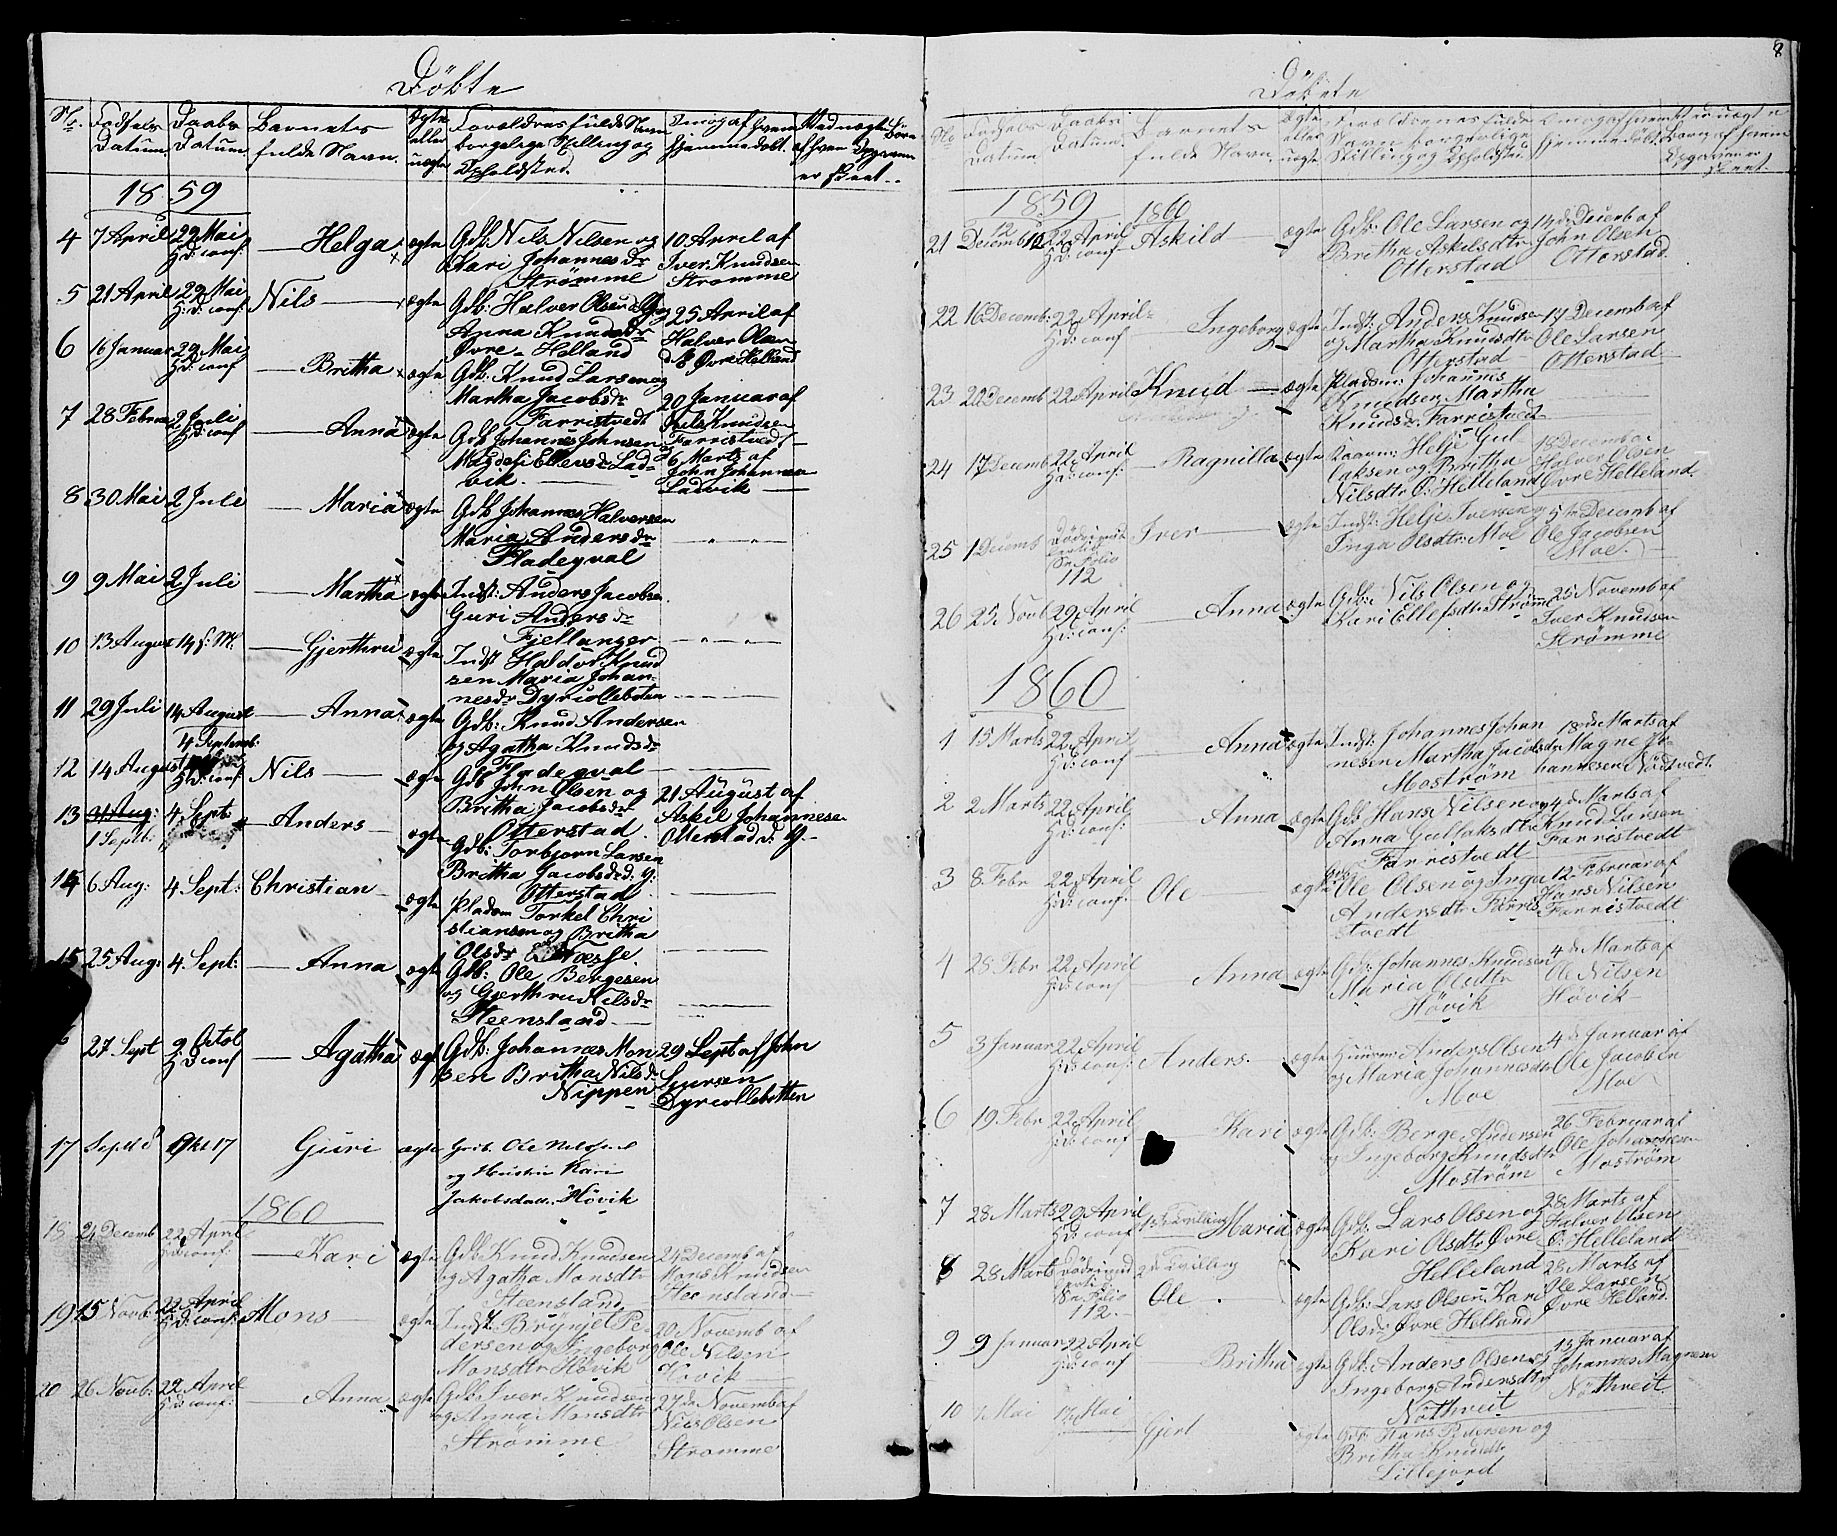 Döbte
No. Fødsels Datum. Daabs Datum. Barnets fulde Navn. ægte eller uægte Forældres fulde Navn borgelige Stilling og Opholdsted. Om og af hvem hjemmedøbt. Ved uægte Børn af hvem Opgaven er skeet.
1859
4 7 April 29 Mai H:D:conf: Helga ægte Gdb: Nils Nilsen og 10 April af
Kari Johannesdr Iver Knudsen
Strømme Strømme
5 21 April 29 Mai H:D:conf: Nils ægte Gdb: Halver Olsen d. Y. og 25 April af
Anna Knudsdr Halver Olsen
Øvre-Helland d. E. Øvre Helland
6 16 Januar 29 Mai H:D:conf Britha ægte Gdb: Knud Larsen og 20 Januar af
Martha Jacobsdr Nils Knudsen
Farristvedt Farristvedt
7 28 Februar 2 Juli H:D:conf Anna ægte Gdb Johannes Johnsen 6 Marts af
Magdeli Ellensdr Lad- John Johannesen
vik. Ladvik
8 30 Mai 2 Juli Maria ægte Gdb Johannes Halversen
Maria Andersdr
Fladeqval
9 9 Mai 2 Juli Martha ægte Indst: Anders Jacobsen
Guri Andersdr
Fjellanger
10 13 August 14 s: M. Gjerthru ægte Indst Haldor Knud
sen Maria Johan-
nesdr Dyriolleboten
11 29 Juli 14 August Anna ægte Gdb: Knud Andersen
og Agatha Knudsdr
Fladeqval
12 14 August 4 Septemb: H:D:conf Nils ægte Gdb John Olsen og 21 August af
Britha Jacobsdr Askil Johannesen
Otterstad. Otterstad d. Y.
13 31 Aug: 1 Sept: 4 Sept: Anders ægte Gdb: Torbjorn Larsen
Britha Jacobsdr d. y:
Otterstad
14 6 Aug: 4 Sept: Christian ægte Pladsm Torkel Chri
stiansen og Britha
Olsdr Næsse.
15 25 Aug: 4 Sept: Anna ægte Gdb: Ole Bergesen
og Gjerthru Nilsdr
Steensland
27 Sept 9 Octob H:D:conf Agatha ægt Gdb: Johannes Mon 29 Sept af John
sen Britha Nilsdr Larsen
Nippen Dyriollebotten
17 Sept 8 Okt 17 Guri ægte Grdb. Ole Nilssen
og Hustru Kari
Jakobsdatt. Høvik
1860
18 24 Decemb 22 April H:D:conf: Kari ægte Gdb: Knud Knudsen 24 Decemb af
og Agatha Monsdtr Mons Knudsen
Steensland Steensland
19 15 Novb: 22 April H:D:conf: Mons ægte Indst: Brynjel Pe- 20 Novemb af
dersen og Ingeborg Ole Nilsen
Monsdtr Høvik Høvik
20 26 Novb: 22 April H:D:conf: Anna ægte Gdb: Iver Knudsen 27de Novemb af
og Anna Monsdtr Nils Olsen
Strømme Strømme
8
Döbte
No Fødsels Datum Daabs Datum. Barnets fulde Navn. ægte eller uægte Forældrenes fulde Navn borgerlige Stilling og Opholdsted. Om og af hvem hjemmedøbt. Ved uægte Barn af hvem Opgaven er skeet.
1859 1860
21 12 Decemb 22 April H:D:conf: Askild ægte Gdb: Ole Larsen og 14de Decemb af
Britha Askilsdtr John Olsen
Otterstad Otterstad.
22 16 Decemb: 22 April H:D:conf Ingeborg ægte Indst: Anders Knudsen 17 Decemb af
og Martha Knudsdtr Ole Larsen
Otterstad Otterstad
23 22 Decemb 22 April Knud ægte Pladsm: Johannes
Knudsen Martha
Knudsdr Farristvedt
24 17 Decemb 22 April H:D:conf: Ragnilla ægte Helje Gul 18 Decemb a.
laksen og Britha Halver Olsen
Nilsdtr Ö: Helleland Øvre Helleland.
25 1 Decemb Iver ægte Indst: Helje Iversen og 5te Decemb af
Inga Olsdtr: Moe Ole Jacobsen
112 Moe.
26 25 Novb 29 April H:D:conf: Anna ægte Gdb: Nils Olsen og 25 Novemb af
Kari Ellefsdtr Strøm Iver Knudsen
Strømme
1860
1 15 Marts 22 April H:D:conf Anna ægte Indst: Johannes Johan 18de Marts af
nesen Martha Jacobsdr Magne Jo-
Moström hannesen Nödtvedt.
2 2 Marts 22 April H:D:conf: Anna ægte Gdb Hans Nilsen og 4de Marts af
Anna Gullaksdtr Knud Larsen
Farristvedt Farristvedt
3 8 Febr 22 April H:D:conf: Ole ægte Gdb: Ole Olsen og Inga 12 Februar af
Andersdtr Farris Hans Nilsen
tvedt Farristvedt
4 28 Febr 22 April H:D:conf Anna ægte Gdb: Johannes Knudsen 4de Marts af
Maria Olsdtr Ole Nilsen
Høvik Høvik
5 3 Januar 22 April H:D:conf: Anders. ægte Anders Olsen 4de Januar af
og Maria Johannesdtr Ole Jacobsen
Moe Moe
6 19 Febr 22 April H:D:conf Kari ægte Gdb: Berge Andersen 26 Februar af
og Ingeborg Knudsdtr Ole Johannesen
Moström Moström
7 28 Marts 29 April H:D:conf 1ste Tvilling Maria ægte Gdb: Lars Olsen og 28 Marts af
Kari Olsdtr Øvre Halver Olsen
Helleland Ö: Helleland
8 28 Marts 2den Tvilling Ole ægte Gdb: Lars Olsen Kari 28 Marts af
112. Olsdr: Øvre Helland Ole Larsen Øvre Helland.
9 9 Januar 22 April H:D:conf Britha ægte Gdb: Anders Olsen og 13 Januar af
Ingeborg Andersdtr Johannes Magnesen
Nöthveit Nöthveit
10 1 Mai 17 Mai Gjert ægte Gdb: Hans Pedersen og
Britha Knudsdtr
Lillejord